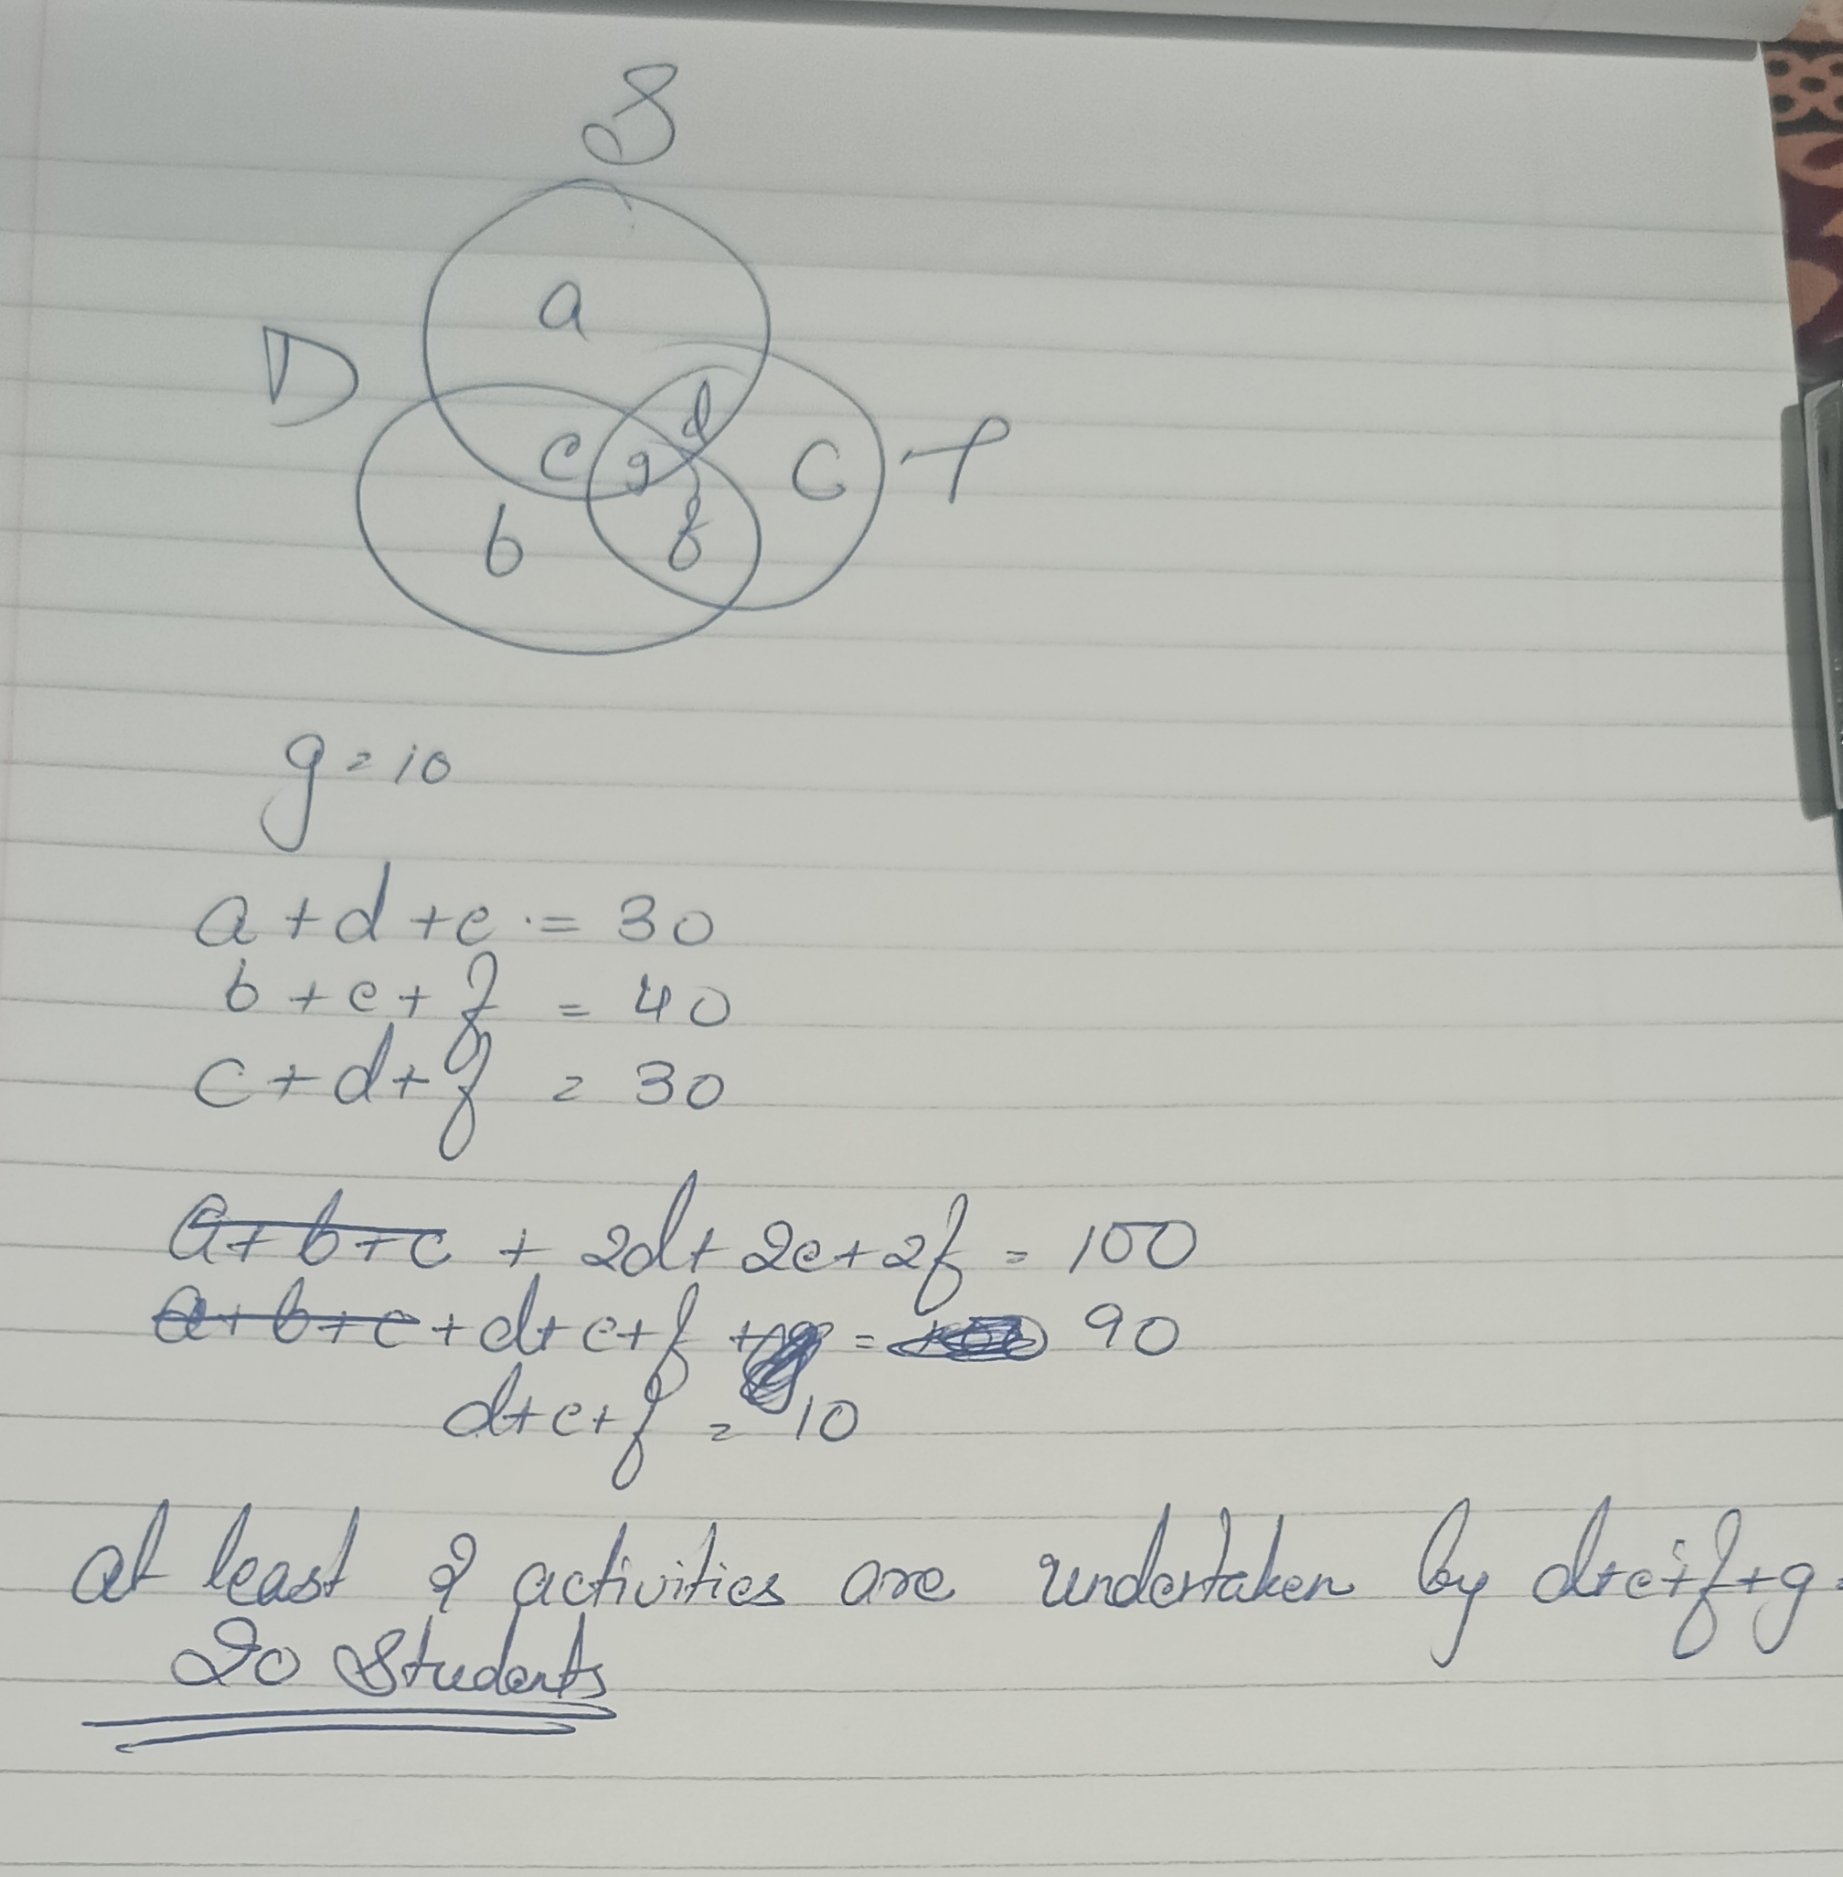 S
a
D
d
e g C T
b f
g = 10
a + d + e . = 30
b + e + f = 40
c + d + f = 30
a + b + c + 2d + 2e + 2f = 100
a + b + c + d + e + f = 90
d + e + f = 10
at least 2 activities are undertaken by d+e+f+g =
20 Students